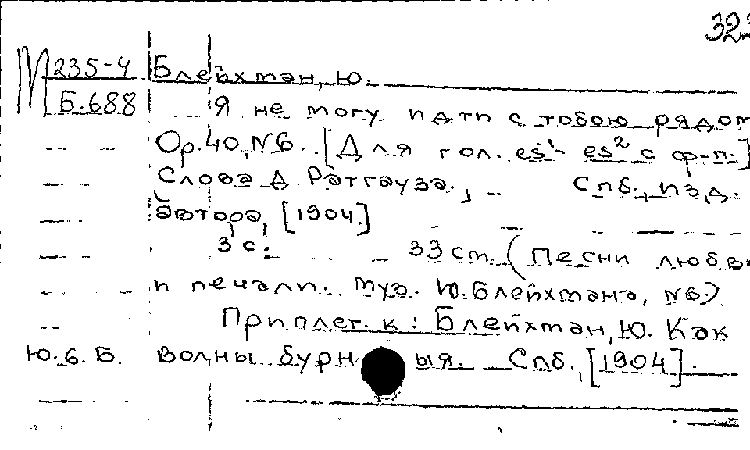 323
М 235-4 Блейхман, Ю.
Б.688 Я не могу идти с тобою рядом
Op.40, №6. [Для гол. es¹ es² с ф-п.]
Слова Д. Ратгауза., Спб., изд.
автора, [1904.]
3 с. 33 ст. (Песни любви
и печали. Муз. Ю. Блейхмана, №6)
Приплет к: Блейхман, Ю. Как
Ю.Б.Б. волны бурные ыя. Спб., [1904].